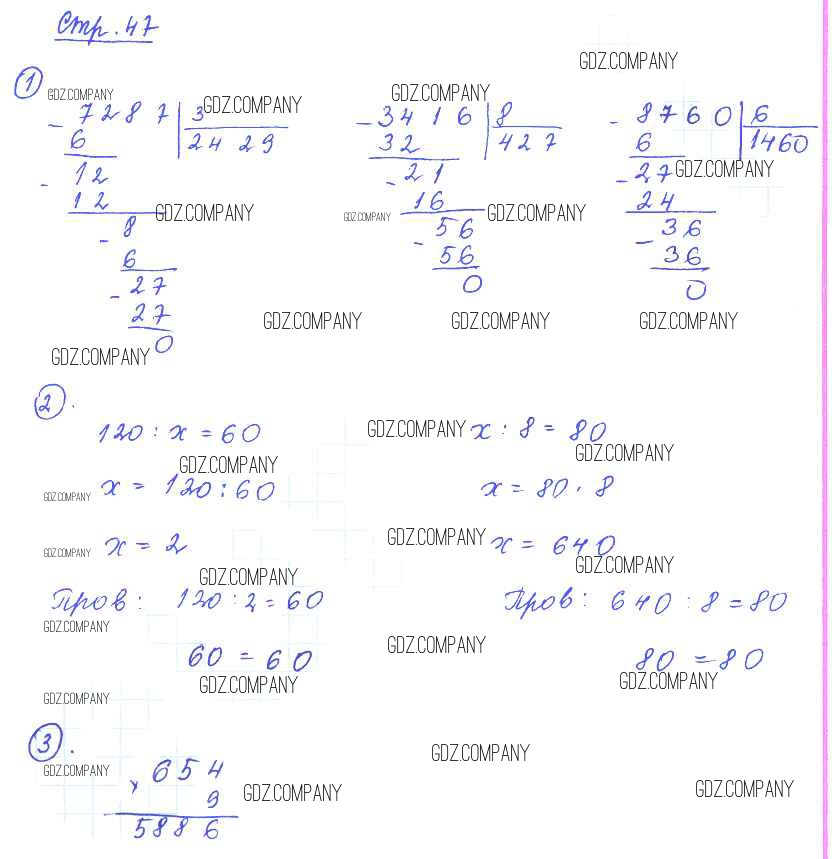 Стр. 47
GDZ.COMPANY
1 GDZ.COMPANY GDZ.COMPANY
- 7287 | 3 GDZ.COMPANY - 3416 | 8 - 8760 | 6
6 2429 32 427 6 1460
- 12 - 21 - 27 GDZ.COMPANY
12 GDZ.COMPANY 16 GDZ.COMPANY 24
GDZ.COMPANY
- 8 - 56 - 36
6 56 36
- 27 0 0
27
GDZ.COMPANY GDZ.COMPANY GDZ.COMPANY
0
GDZ.COMPANY
2.
120 : x = 60 GDZ.COMPANY x : 8 = 80
GDZ.COMPANY GDZ.COMPANY
GDZ.COMPANY x = 120 : 60 x = 80 · 8
GDZ.COMPANY x = 2 GDZ.COMPANY x = 640
GDZ.COMPANY GDZ.COMPANY
Пров: 120 : 2 = 60 Пров: 640 : 8 = 80
GDZ.COMPANY GDZ.COMPANY
60 = 60 80 = 80
GDZ.COMPANY GDZ.COMPANY
GDZ.COMPANY
3.
GDZ.COMPANY
GDZ.COMPANY × 654
9 GDZ.COMPANY GDZ.COMPANY
5886